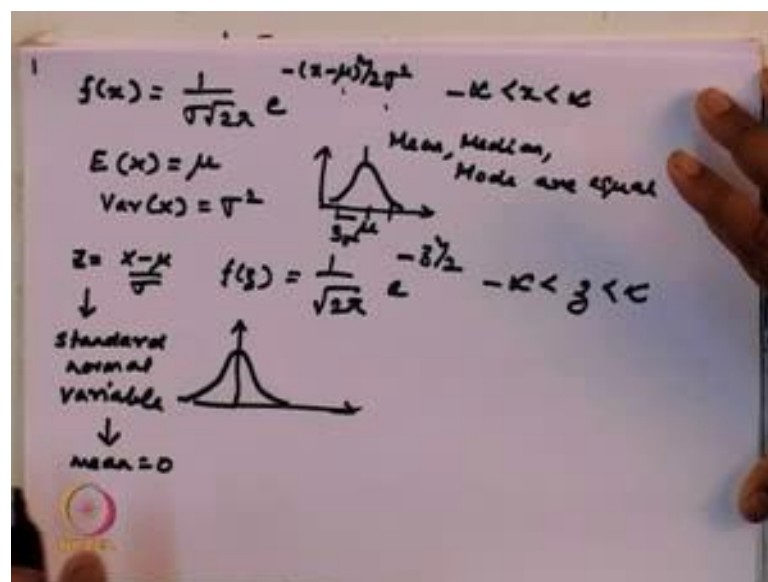 1
f(x) = 1/(σ√2π) e^-(x-μ)²/2σ² -∝ < x < ∝
E(x) = μ
Var(x) = σ²
Mean, Median,
Mode are equal
μ
z = x-μ/σ f(z) = 1/√2π e^-z²/2 -∝ < z < ∝
Standard
normal
variable
mean = 0